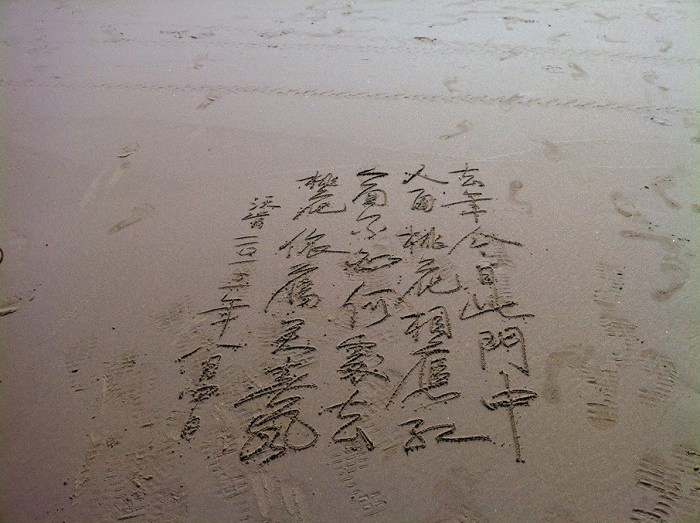 去年今日此門中
人面桃花相應紅
人面不知何處去
桃花依舊笑春風
二〇一 年八月